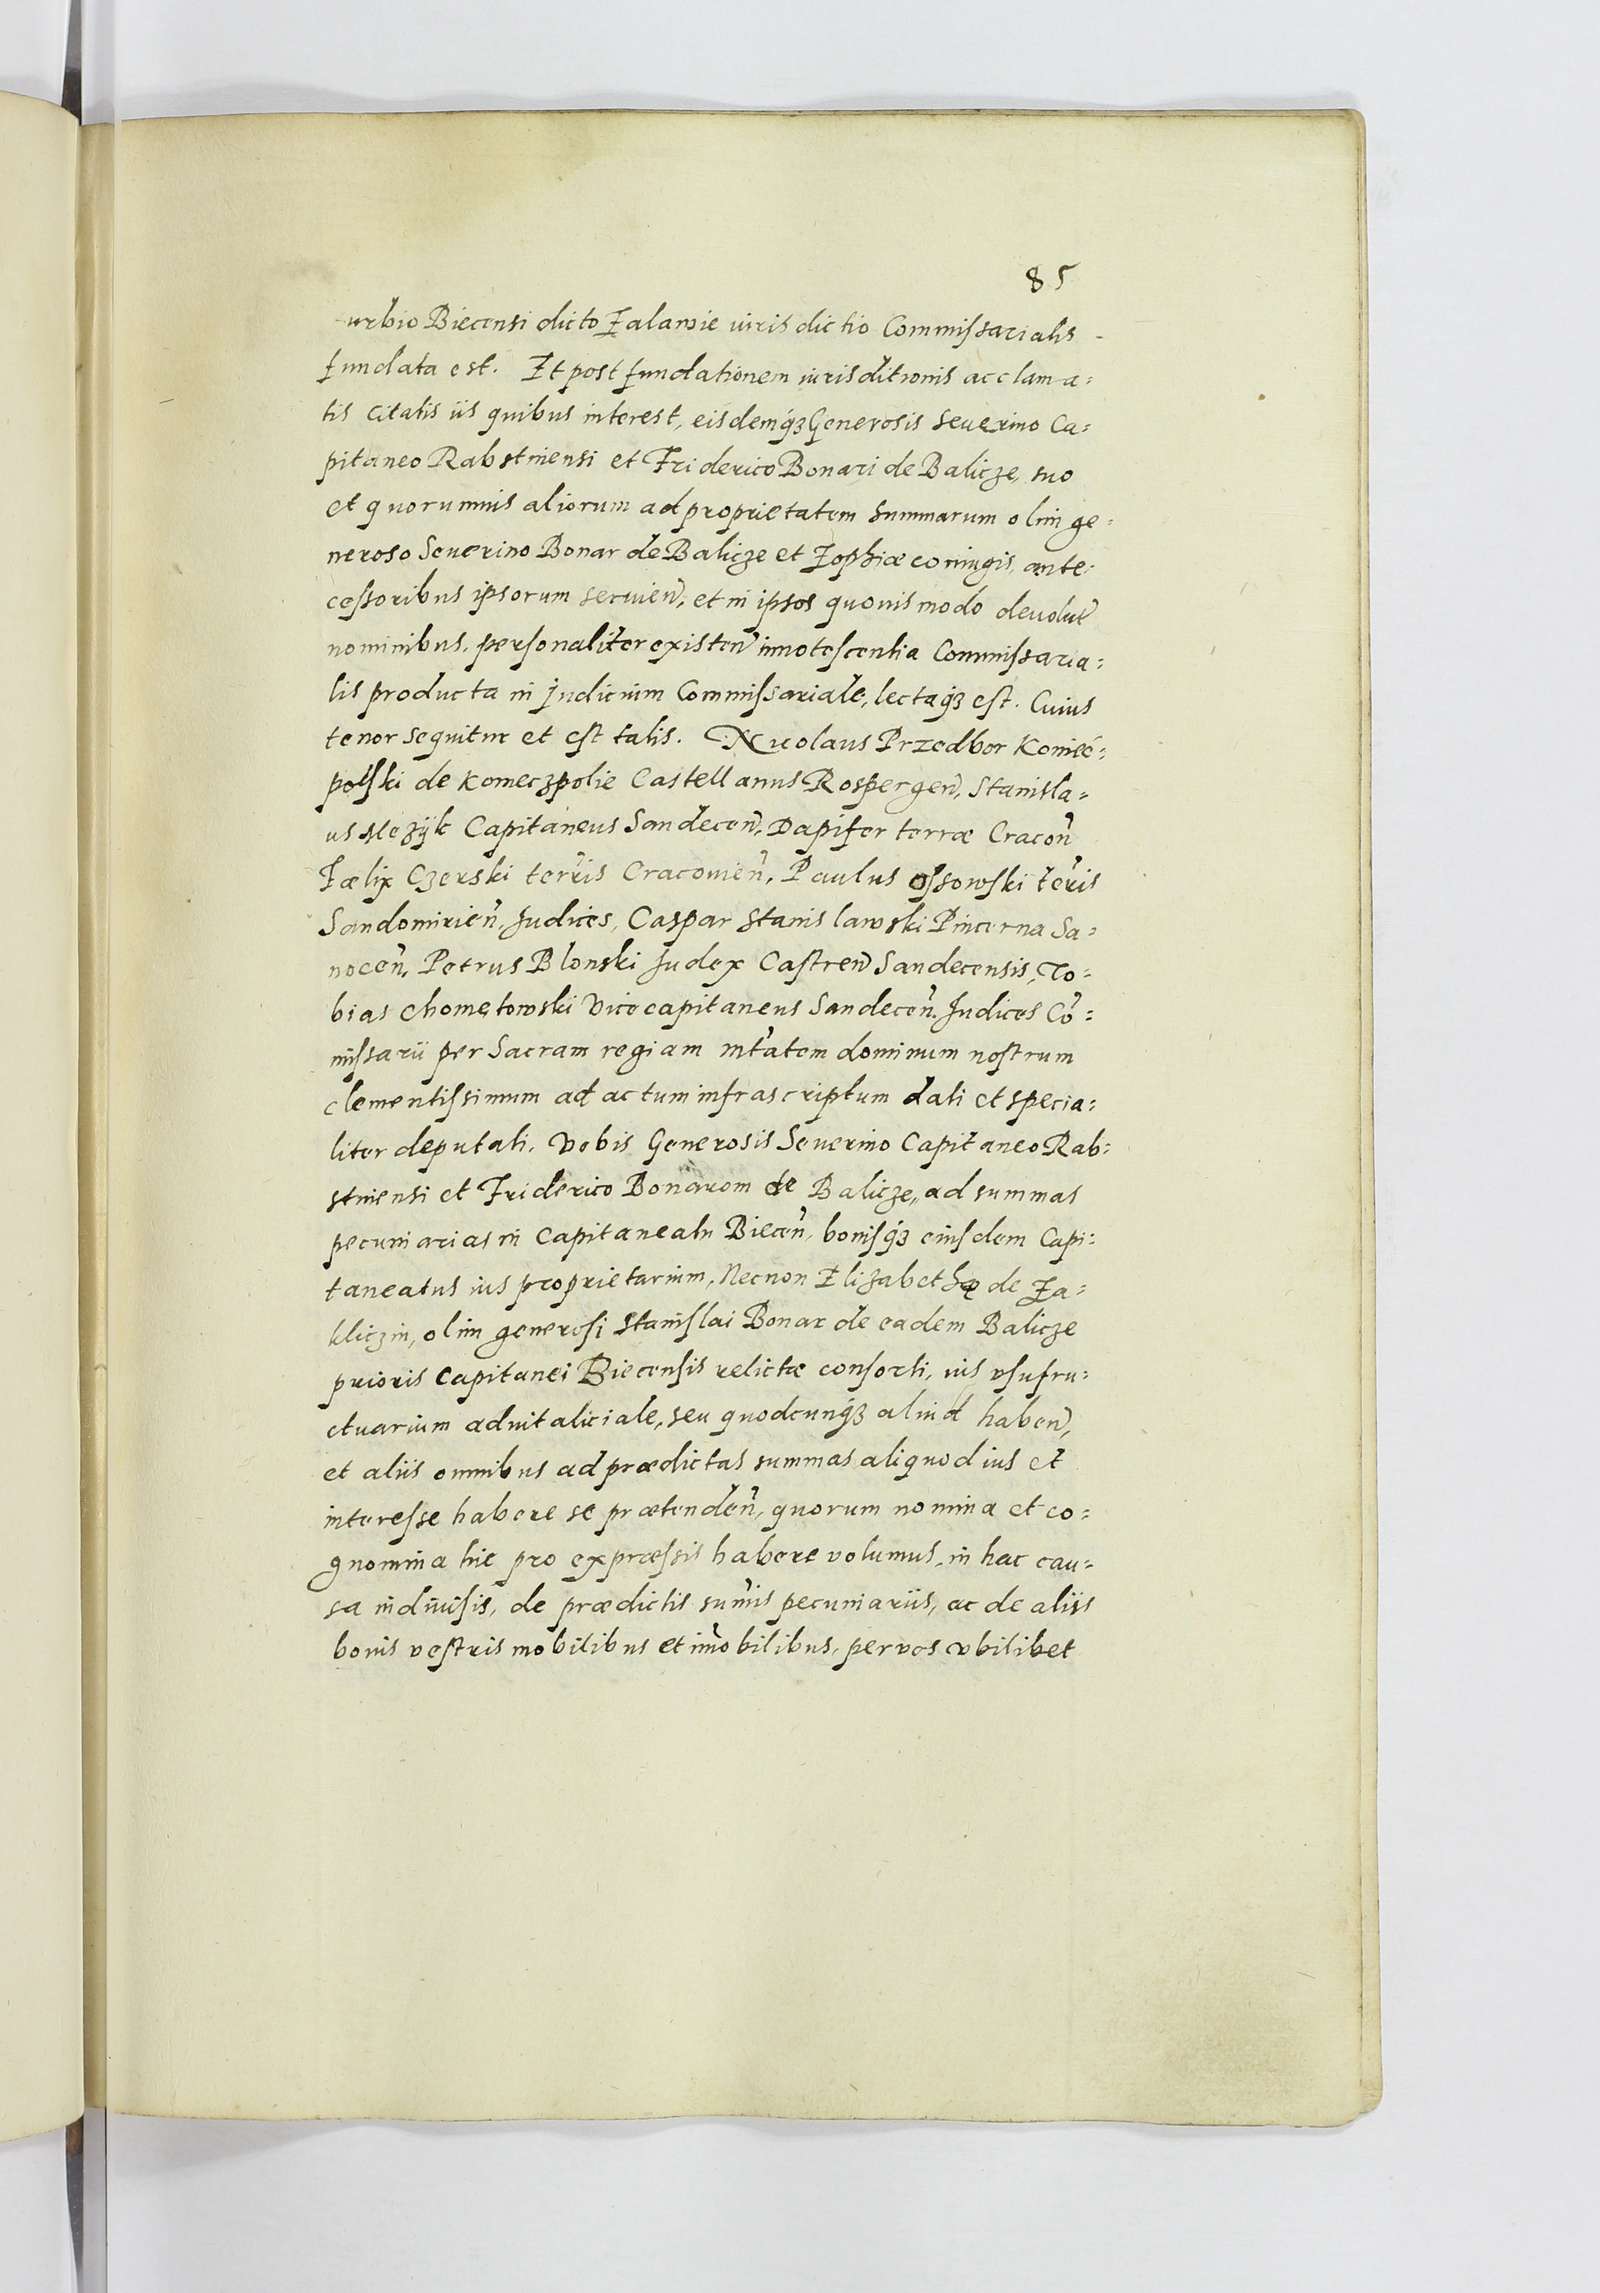 85
urbio Biecensi dicto Zalawie iurisdictio Commissarialis
fundata est. Et post fundationem iurisditionis acclama=
tis citatis iis quibus interest, eisdemq́ʒ Generosis Seuerino Ca=
pitaneo Rabstinensi et Friderico Bonari de Balicze, suo
et quorumuis aliorum ad proprietatem summarum olim ge=
neroso Seuerino Bonar de Balicze et Zophiæ coniugis, ante=
cessoribus ipsorum seruien̄, et in ipsos quouis modo deuolut̄
nominibus, personaliter existen̄ innotescentia Commissaria=
lis producta in Judicium Commissariale, lectaq́ʒ est. Cuius
tenor sequitur et est talis. Nicolaus Przedbor Koniec=
polski de Konieczpolie Castellanus Rospergen̄, Stanisla=
us Mezÿk Capitaneus Sandecen̄, Dapifer terræ Cracon̄
Fælix Czerski terr̄is Cracouien̄, Paulus Ossowski ter̄is
Sandomirien̄, Judices, Caspar Stanislawski Pincerna Sa=
nocen̄, Petrus Blonski Judex Castren̄ Sandecensis, To=
bias Chometowski Vicecapitaneus Sandecen̄. Judices Co̅=
missarii per Sacram regiam mt̄atem dominum nostrum
clementissimum ad actum infrascriptum dati et specia=
liter deputati. Vobis Generosis Seuerino Capitaneo Rab=
stinensi et Friderico Bonarom de Balicze, ad summas
pecuniarias in Capitaneatu Biecen̄, bonisq́ʒ eiusdem Capi=
taneatus ius proprietarium, Necnon Elizabethæ de Za=
kliczin, olim generosi Stanislai Bonar de eadem Balicze
prioris Capitanei Biecensis relictæ consorti, ius vsufru=
ctuarium aduitaliciale, seu quodcunq́ʒ aliud haben̄,
et aliis omnibus ad prædictas summas aliquod ius et
interesse habere se prætenden̄, quorum nomina et co=
gnomina hic pro expræssis habere volumus, in hac cau=
sa indiuisis, de prædictis sum̄is pecuniariis, ac de aliis
bonis vestris mobilibus et im̄obilibus, per vos vbilibet